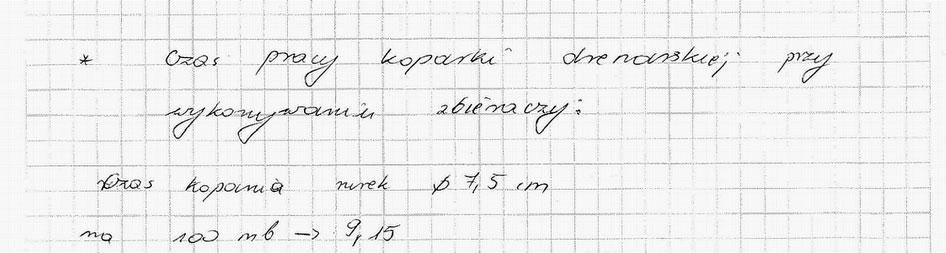 * Czas pracy koparki drenarskiej przy
wykonywaniu zbieraczy:
Czas kopania rurek ϕ 7,5 cm
na 100 mb → 9,15